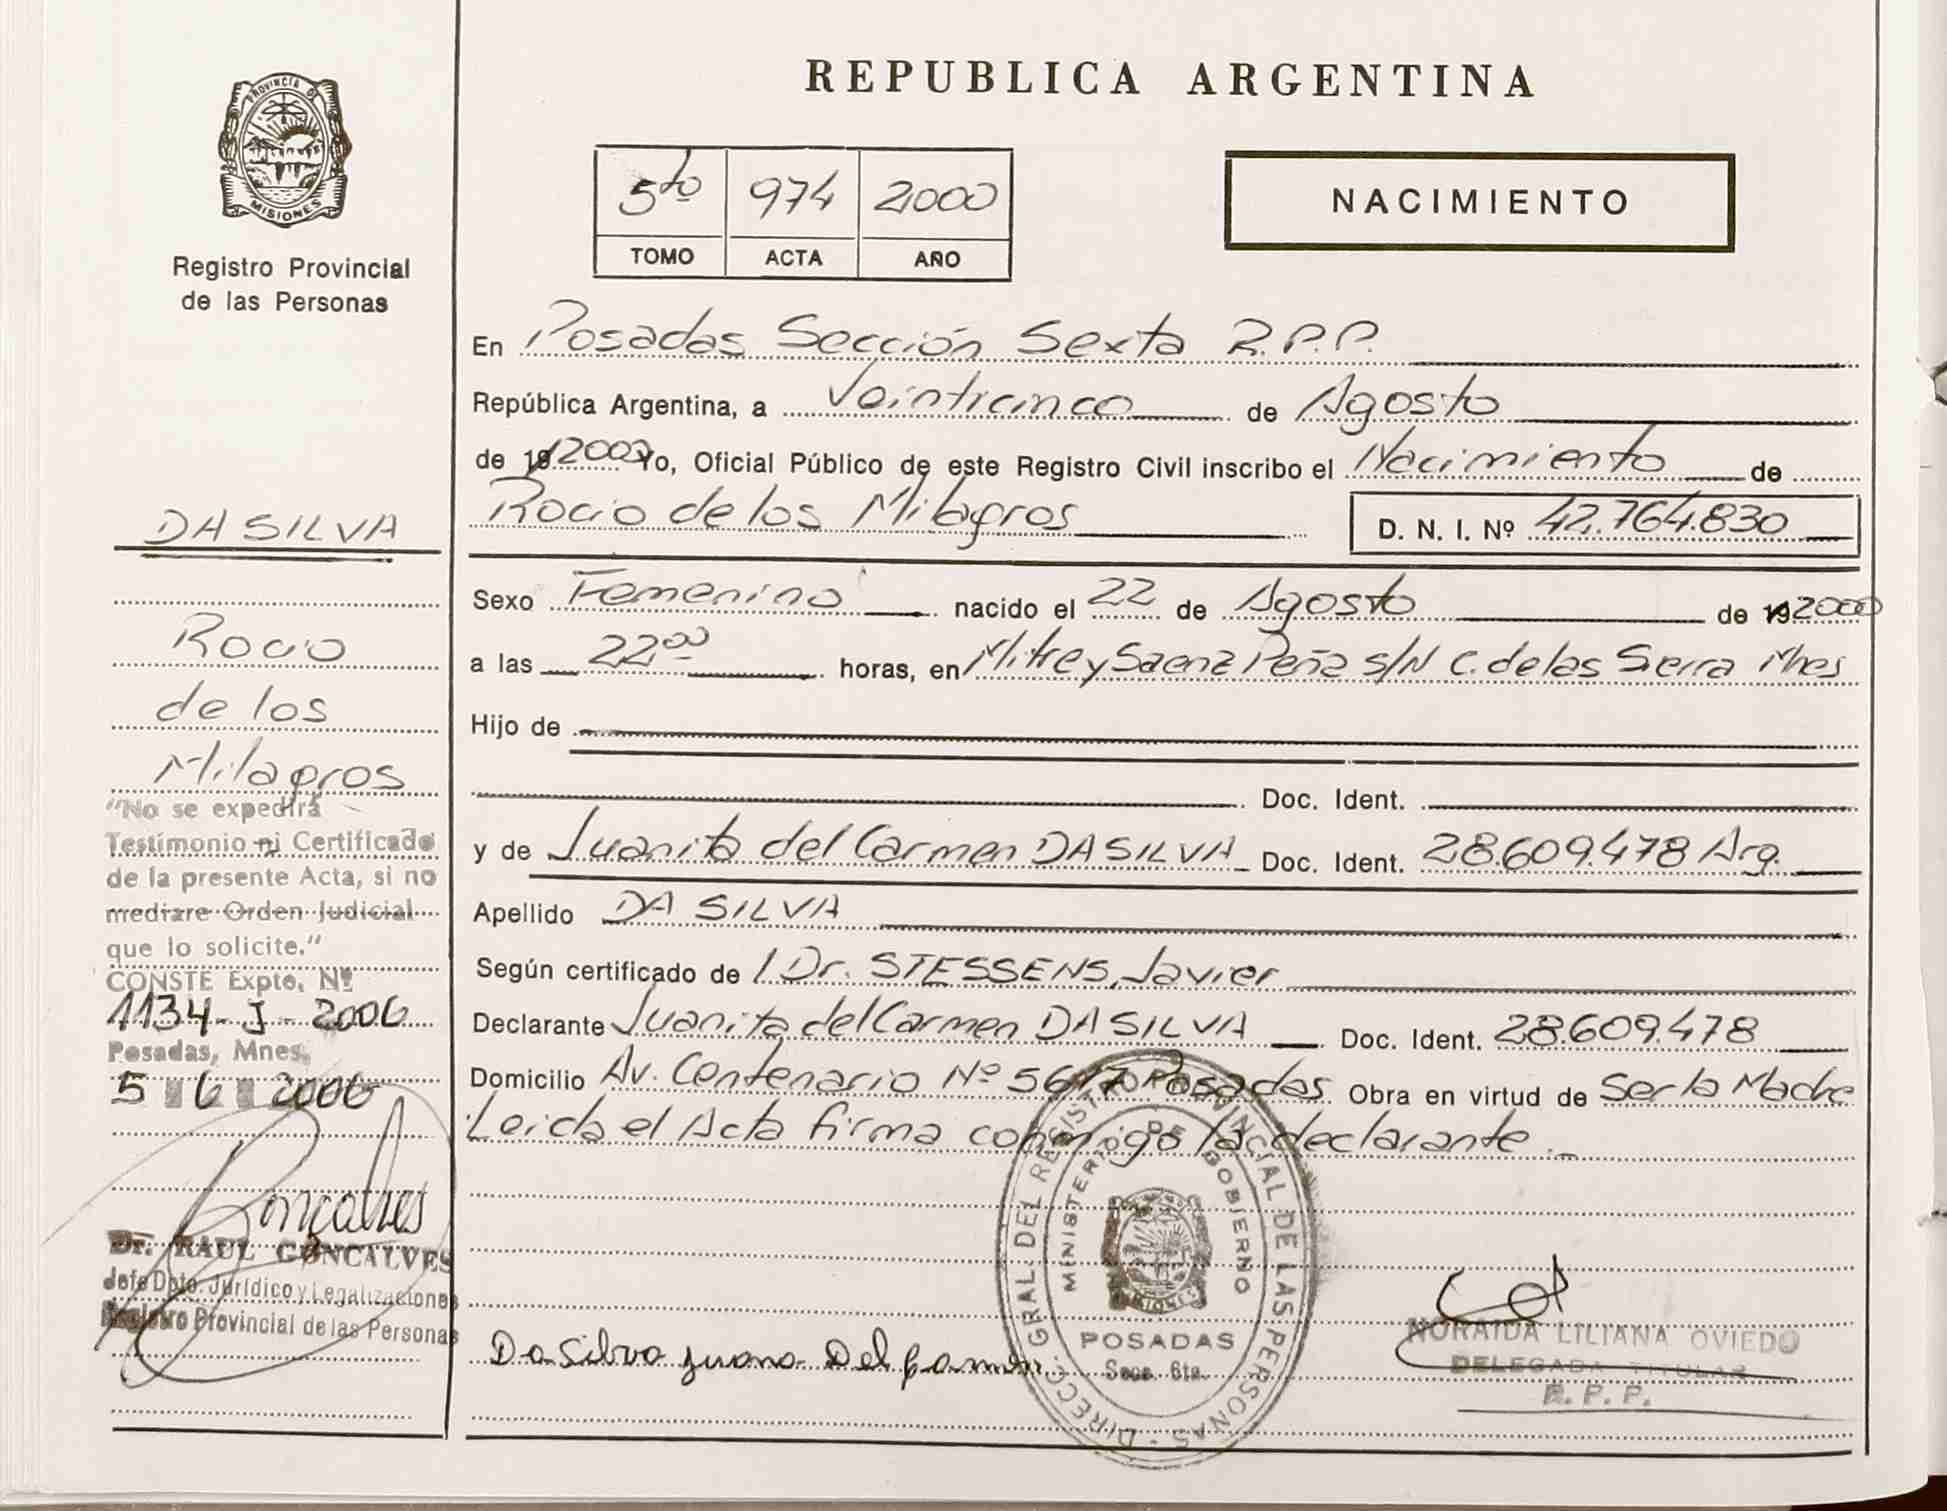 PROVINCIA D
MISIONES
Registro Provincial
de las Personas
DA SILVA
Rocio
de los
Milagros
"No se expedirá
Testimonio ni Certificado
de la presente Acta, si no
mediare Orden Judicial
que lo solicite."
CONSTE Expte. Nº
1134-J-2006
Posadas, Mnes.
5 6 2006
Goncalves
Dr. RAUL GONCALVES
Jefe Dpto. Jurídico y Legalizaciones
Registro Provincial de las Personas
REPUBLICA ARGENTINA
5to 974 2000
TOMO ACTA AÑO
NACIMIENTO
En Posadas Sección Sexta R.P.P.
República Argentina, a Veinticinco de Agosto
de 19 2000 Yo, Oficial Público de este Registro Civil inscribo el Nacimiento de
Rocio de los Milagros D. N. I. Nº 42.764.830
Sexo Femenino nacido el 22 de Agosto de 19 2000
a las 22 00 horas, en Mitre y Saenz Peña s/N C. de las Sierra Mnes
Hijo de
Doc. Ident.
y de Juanita del Carmen DA SILVA Doc. Ident. 28.609.478 Arg.
Apellido DA SILVA
Según certificado de l Dr. STESSENS, Javier
Declarante Juanita del Carmen DA SILVA Doc. Ident. 28.609.478
Domicilio Av. Centenario Nº 5617 Posadas Obra en virtud de Ser la Madre
Leida el Acta firma conmigo la declarante._
DIRECC. GRAL. DEL REGISTRO PROVINCIAL DE LAS PERSONAS
MINISTERIO DE GOBIERNO
MISIONES
POSADAS
Secc. 6ta.
Da Silva Juana Del Carmen
NORAIDA LILIANA OVIEDO
DELEGADA TITULAR
R. P. P.